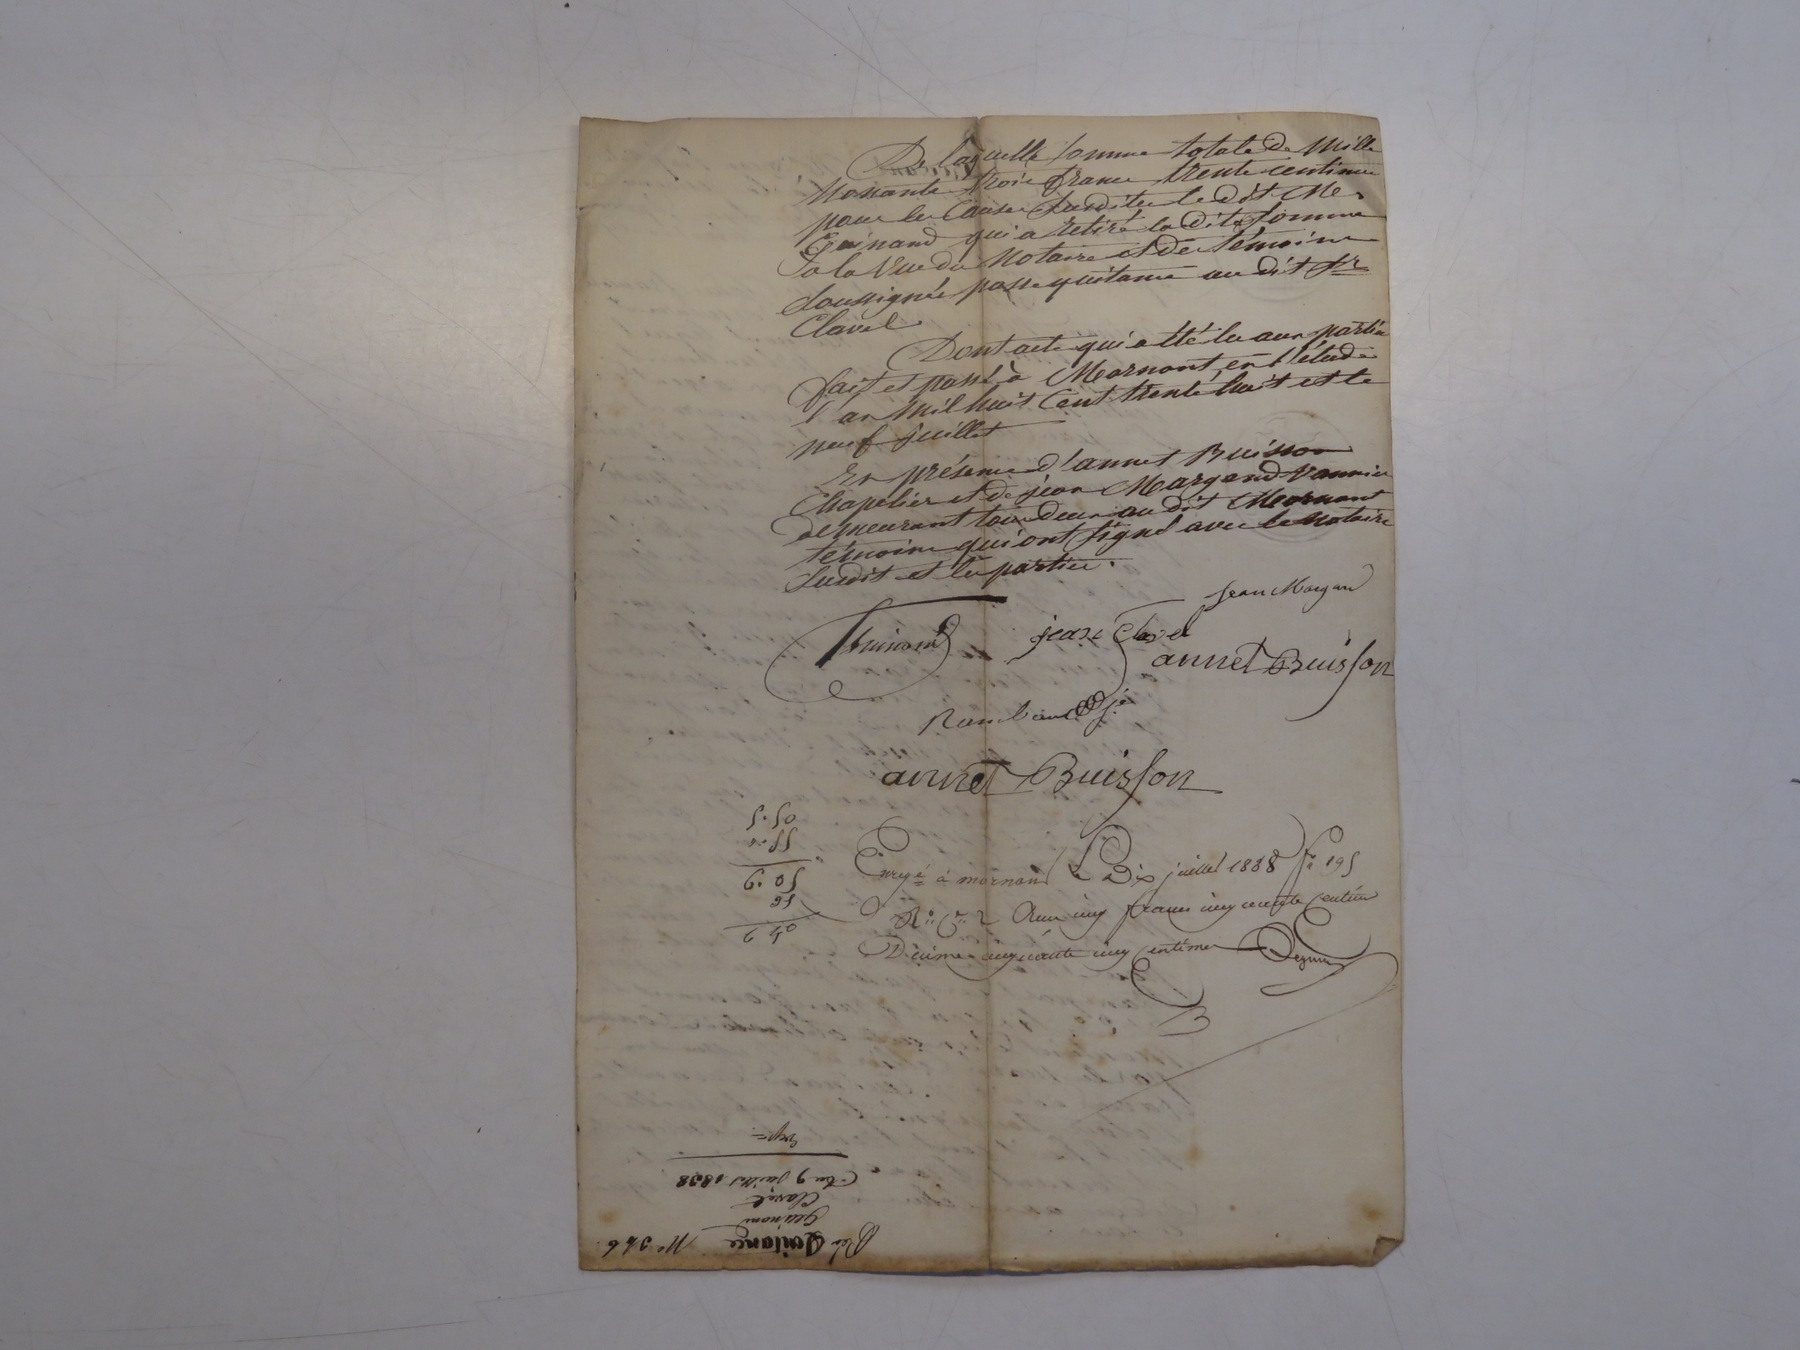 De laquelle somme totale de Mille
Nonante trois francs trente centimes
pour les Causes susdites le dit Me
Guinand qui a retiré la dite somme
à la Vue du Notaire et de témoins
soussignés passe quitance au dit Sr
Clavel
Dont acte qui a été lu aux parties
fait et passé à Mornant, en l'étude
l'an Mil huit Cent trente huit et le
neuf juillet
En présence d'annet Buisson
Chapelier et de jean Margand Vannier
demeurant tous deux au dit Mornant
témoins qui ont signé avec le Notaire
susdit et les parties.
jean Margan
Guinand jean Clavel
annet Buisson
annet Buisson
5.50
55
6.05
55
6 60
Enregé à mornant Le Dix juillet 1838 fo 195
Ro Ce 2 Reçu cinq francs cinquante centimes
Décime cinquante cinq centimes
Quitance No 346
Guinand
Clavel
Du 9 juillet 1838
Expe